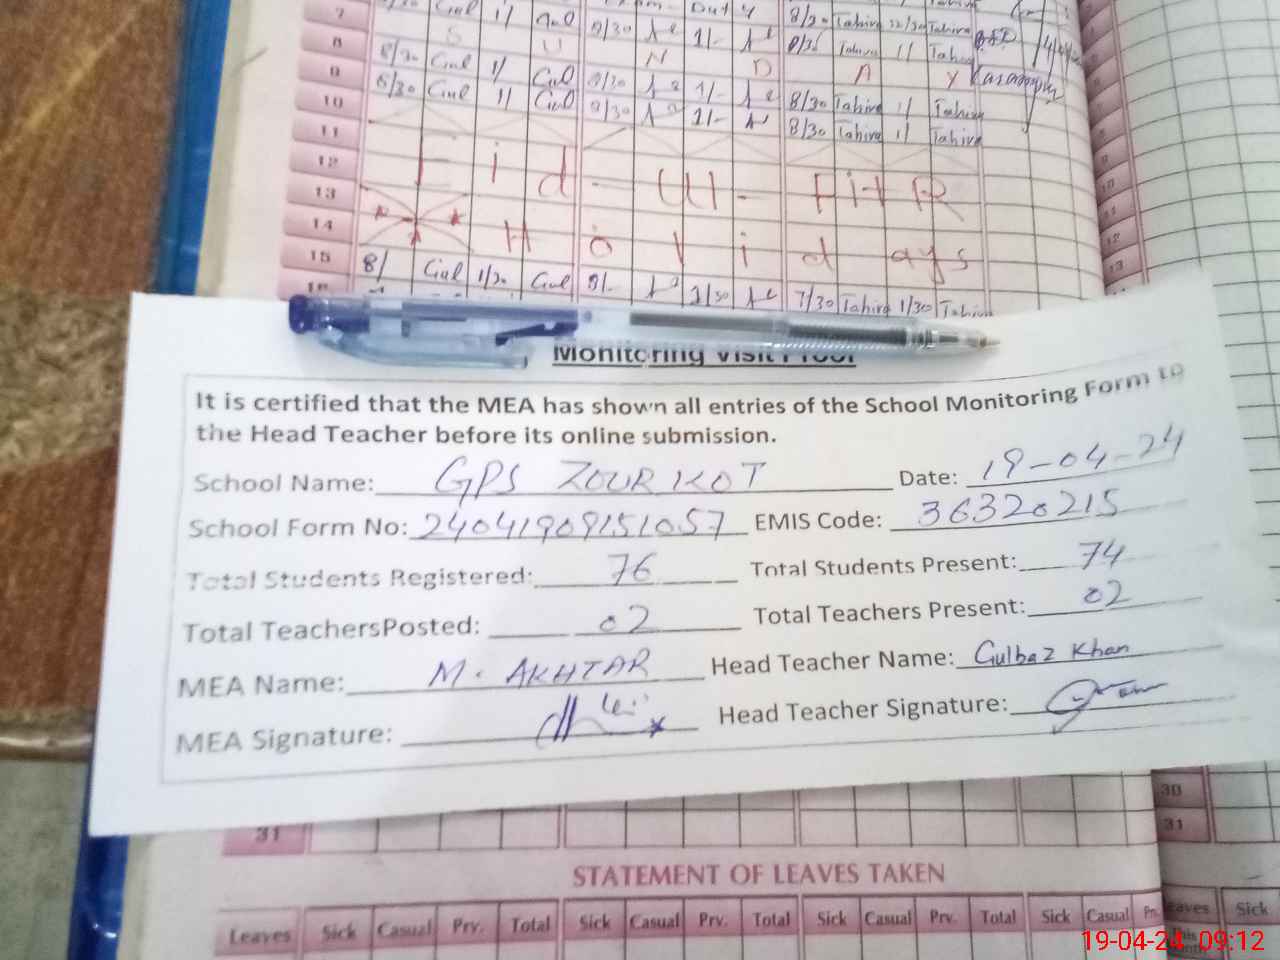 7 8/30 Gul 1/ Gul 8/30 1/- 8/30 Tahira 12/30 Tahira
8 S U N D A Y
8/30 Gul 1/ Gul 8/30 1/- 8/30 Tahira 1/ Tahira
9 8/30 Gul 1/ Gul 8/30 1/- 8/30 Tahira 1/ Tahira
10
11
12 Eid-Ul-FitR
13
14 Holidays
15 8/ Gul 1/30 Gul 8/- 1/30 7/30 Tahira 1/30 Tahira
16
Monitoring Visit Proof
It is certified that the MEA has shown all entries of the School Monitoring Form to
the Head Teacher before its online submission.
School Name: GPS ZOUR KOT Date: 19-04-24
School Form No: 24041909151057 EMIS Code: 36320215
Total Students Registered: 76 Total Students Present: 74
Total TeachersPosted: 02 Total Teachers Present: 02
MEA Name: M. AKHTAR Head Teacher Name: Gulbaz Khan
MEA Signature: Head Teacher Signature:
30
31 31
STATEMENT OF LEAVES TAKEN
Leaves Sick Casual Prv. Total Sick Casual Prv. Total Sick Casual Prv. Total Sick Casual Prv. Leaves Sick
19-04-24 09:12